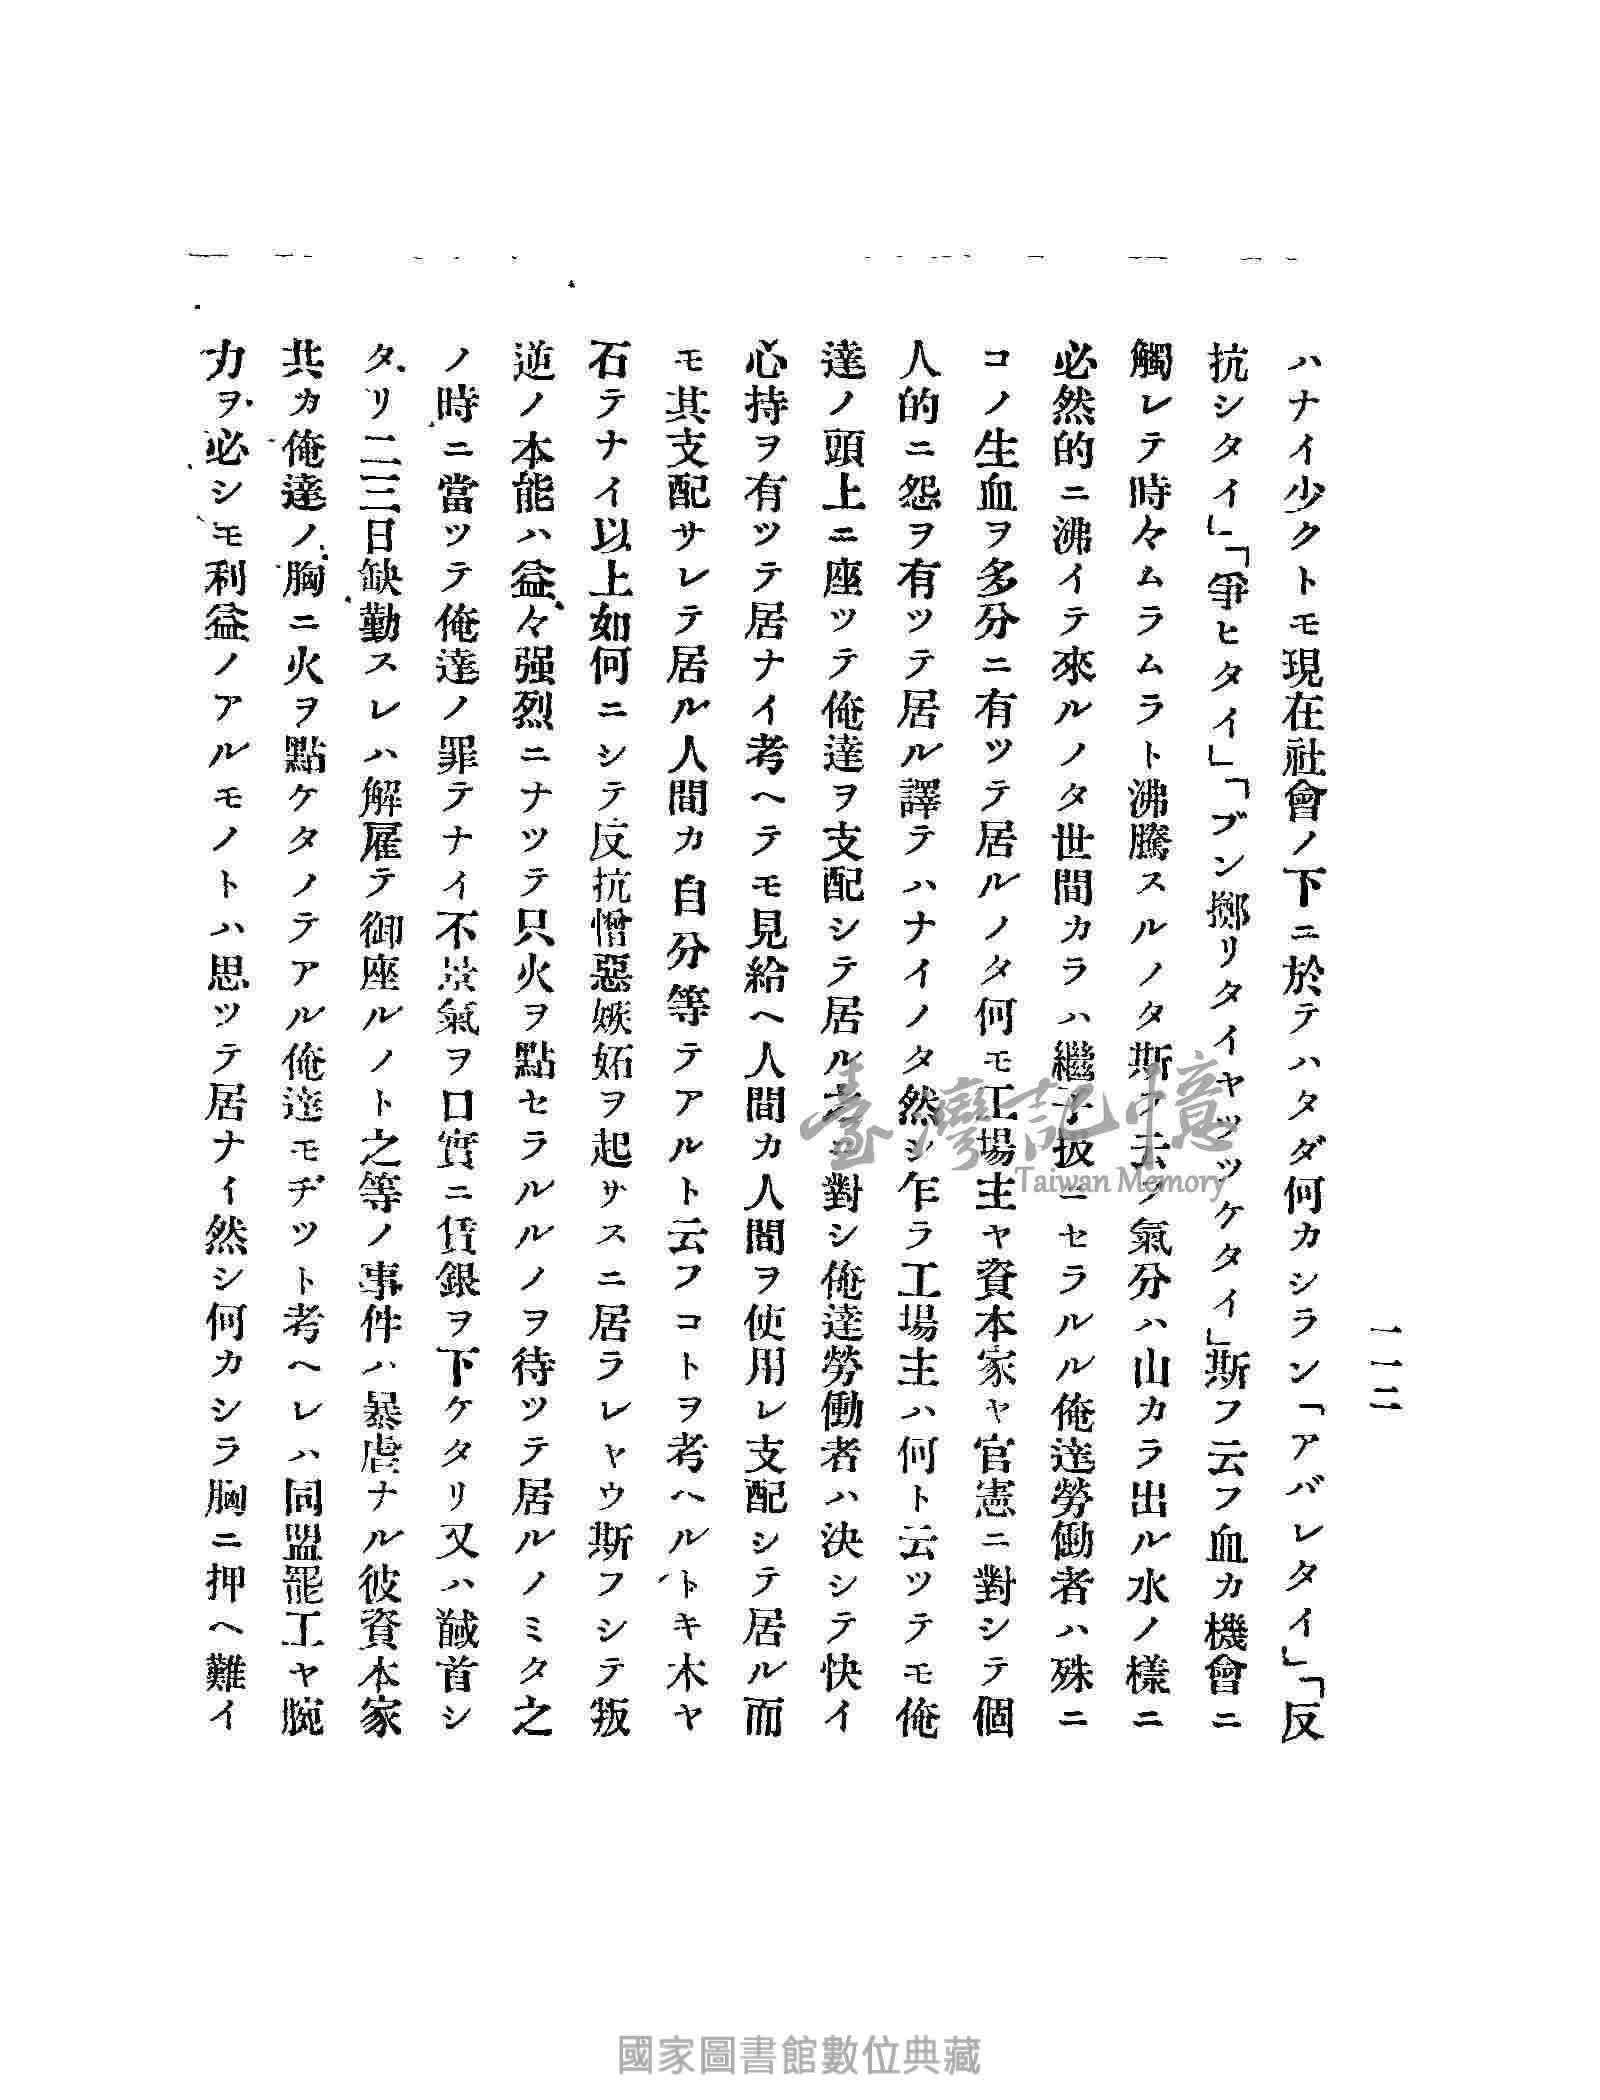 一一二
ハナイ少クトモ現在社會ノ下ニ於テハタダ何カシラン「アバレタイ」「反
抗シタイ」「爭ヒタイ」「ブン擲リタイヤッツケタイ」斯フ云フ血カ機會ニ
觸レテ時々ムラムラト沸騰スルノタ斯フ云フ氣分ハ山カラ出ル水ノ樣ニ
必然的ニ沸イテ來ルノタ世間カラハ繼子扱ニセラルル俺達勞働者ハ殊ニ
コノ生血ヲ多分ニ有ツテ居ルノタ何モ工場主ヤ資本家ヤ官憲ニ對シテ個
人的ニ怨ヲ有ツテ居ル譯テハナイノタ然シ乍ラ工場主ハ何ト云ツテモ俺
達ノ頭上ニ座ツテ俺達ヲ支配シテ居ル者ニ對シ俺達勞働者ハ決シテ快イ
心持ヲ有ツテ居ナイ考ヘテモ見給ヘ人間カ人間ヲ使用レ支配シテ居ル而
モ其支配サレテ居ル人間カ自分等テアルト云フコトヲ考ヘルトキ木ヤ
石テナイ以上如何ニシテ反抗憎惡嫉妬ヲ起サスニ居ラレヤウ斯フシテ叛
逆ノ本能ハ益々强烈ニナツテ只火ヲ點セラルルノヲ待ツテ居ルノミタ之
ノ時ニ當ツテ俺達ノ罪テナイ不景氣ヲ口實ニ賃銀ヲ下ケタリ又ハ馘首シ
タリ二三日缺勤スレハ解雇テ御座ルノト之等ノ事件ハ暴虐ナル彼資本家
共カ俺達ノ胸ニ火ヲ點ケタノテアル俺達モヂツト考ヘレハ同盟罷工ヤ腕
力ヲ必シモ利益ノアルモノトハ思ツテ居ナイ然シ何カシラ胸ニ押ヘ難イ
臺灣記憶
Taiwan Memory
國家圖書館數位典藏